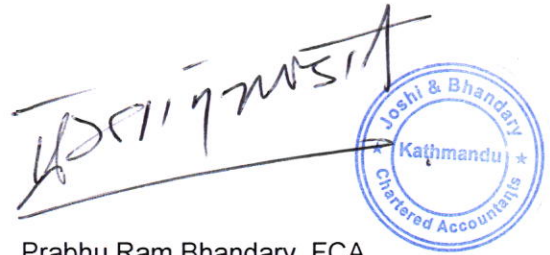 Joshi & Bhandary
Kathmandu
Chartered Accountants
Prabhu Ram Bhandary, FCA